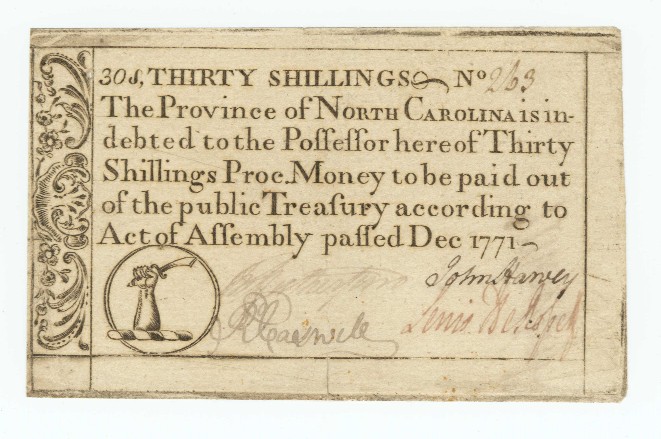 30s, THIRTY SHILLINGS No 263
The Province of NORTH CAROLINA is in-
debted to the Poſſeſſor hereof Thirty
Shillings Proc. Money to be paid out
of the public Treaſury according to
Act of Aſſembly paſſed Dec 1771
John Harvey
R Caswell
Lewis